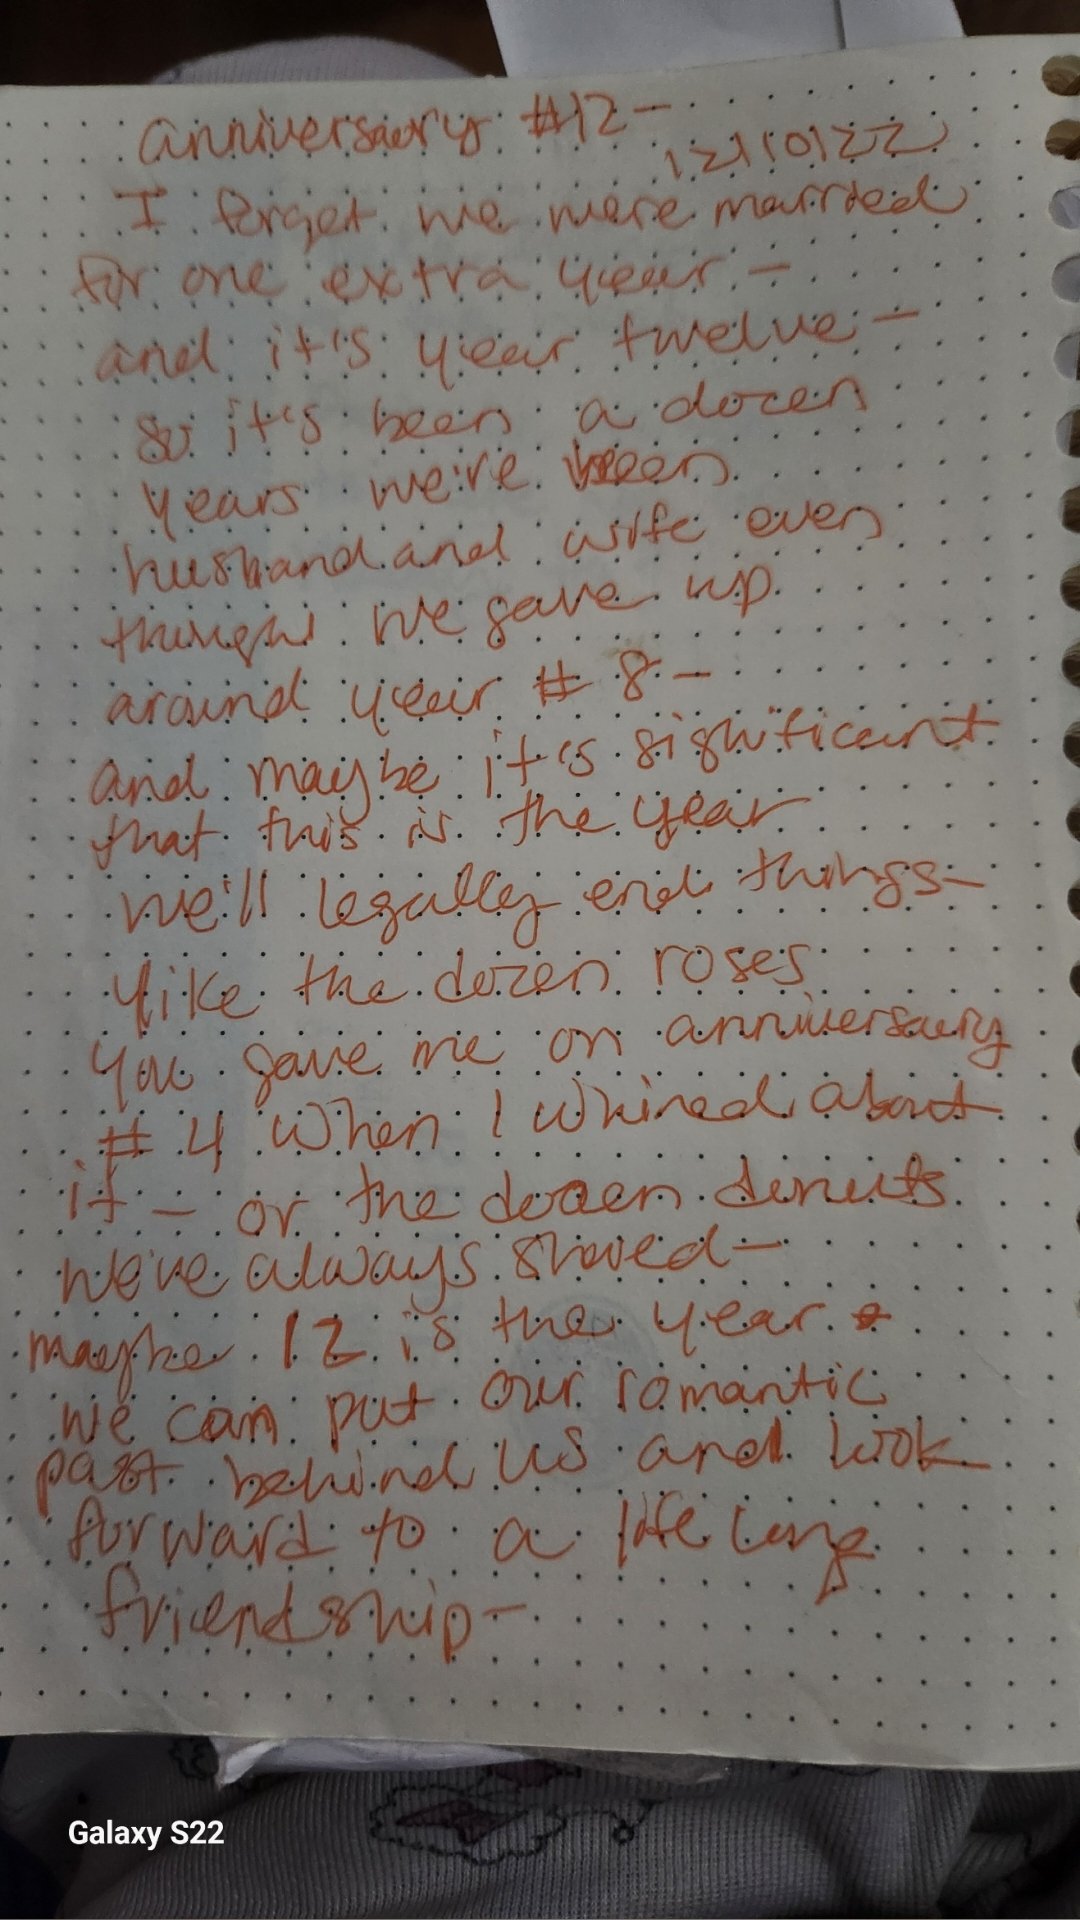 anniversary #12-
12/10/22
I forget we were married
for one extra year -
and it's year twelve -
so it's been a dozen
years we've been
husband and wife even
though we gave up
around year # 8 -
and maybe it's significant
that this is the year
we'll legally end things -
like the dozen roses
you gave me on anniversary
# 4 when I whined about
it - or the dozen donuts
we've always shared -
maybe 12 is the year
we can put our romantic
past behind us and look
forward to a life long
friendship -
Galaxy S22